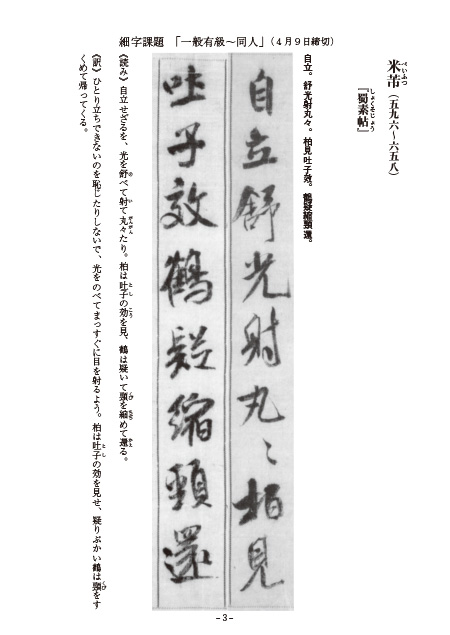 細字課題 「一般有級〜同人」(4月9日締切)
米芾(五九六〜六五八)
べいふつ
『蜀素帖』
しょくそじょう
自立。舒光射丸々。柏見吐子效。鶴疑縮頸還。
自立舒光射丸〻柏見
吐子效鶴疑縮頸還
《読み》自立せざるを、光を舒べて射て丸々たり。柏は吐子の効を見、鶴は疑いて頸を縮めて還る。
《訳》ひとり立ちできないのを恥じたりしないで、光をのべてまっすぐに目を射るよう。柏は吐子の効を見せ、疑りぶかい鶴は頸をす
くめて帰ってくる。
-3-